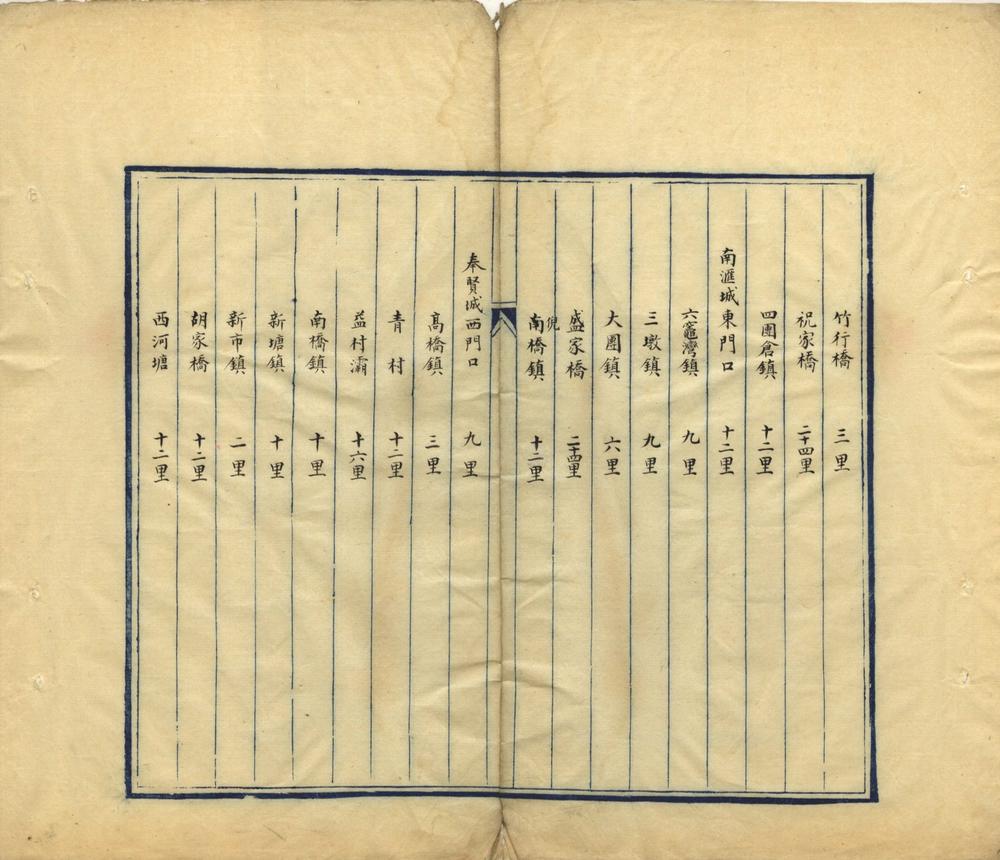 竹行橋 三里
祝家橋 二十四里
四團倉鎮 十二里
南滙城東門口 十二里
六竈灣鎮 九里
三墩鎮 九里
大團鎮 六里
盛家橋 二十四里
倪南橋鎮 十二里
奉賢城西門口 九里
高橋鎮 三里
青村 十二里
益村灞 十六里
南橋鎮 十里
新塘鎮 十里
新市鎮 二里
胡家橋 十二里
西河塘 十二里